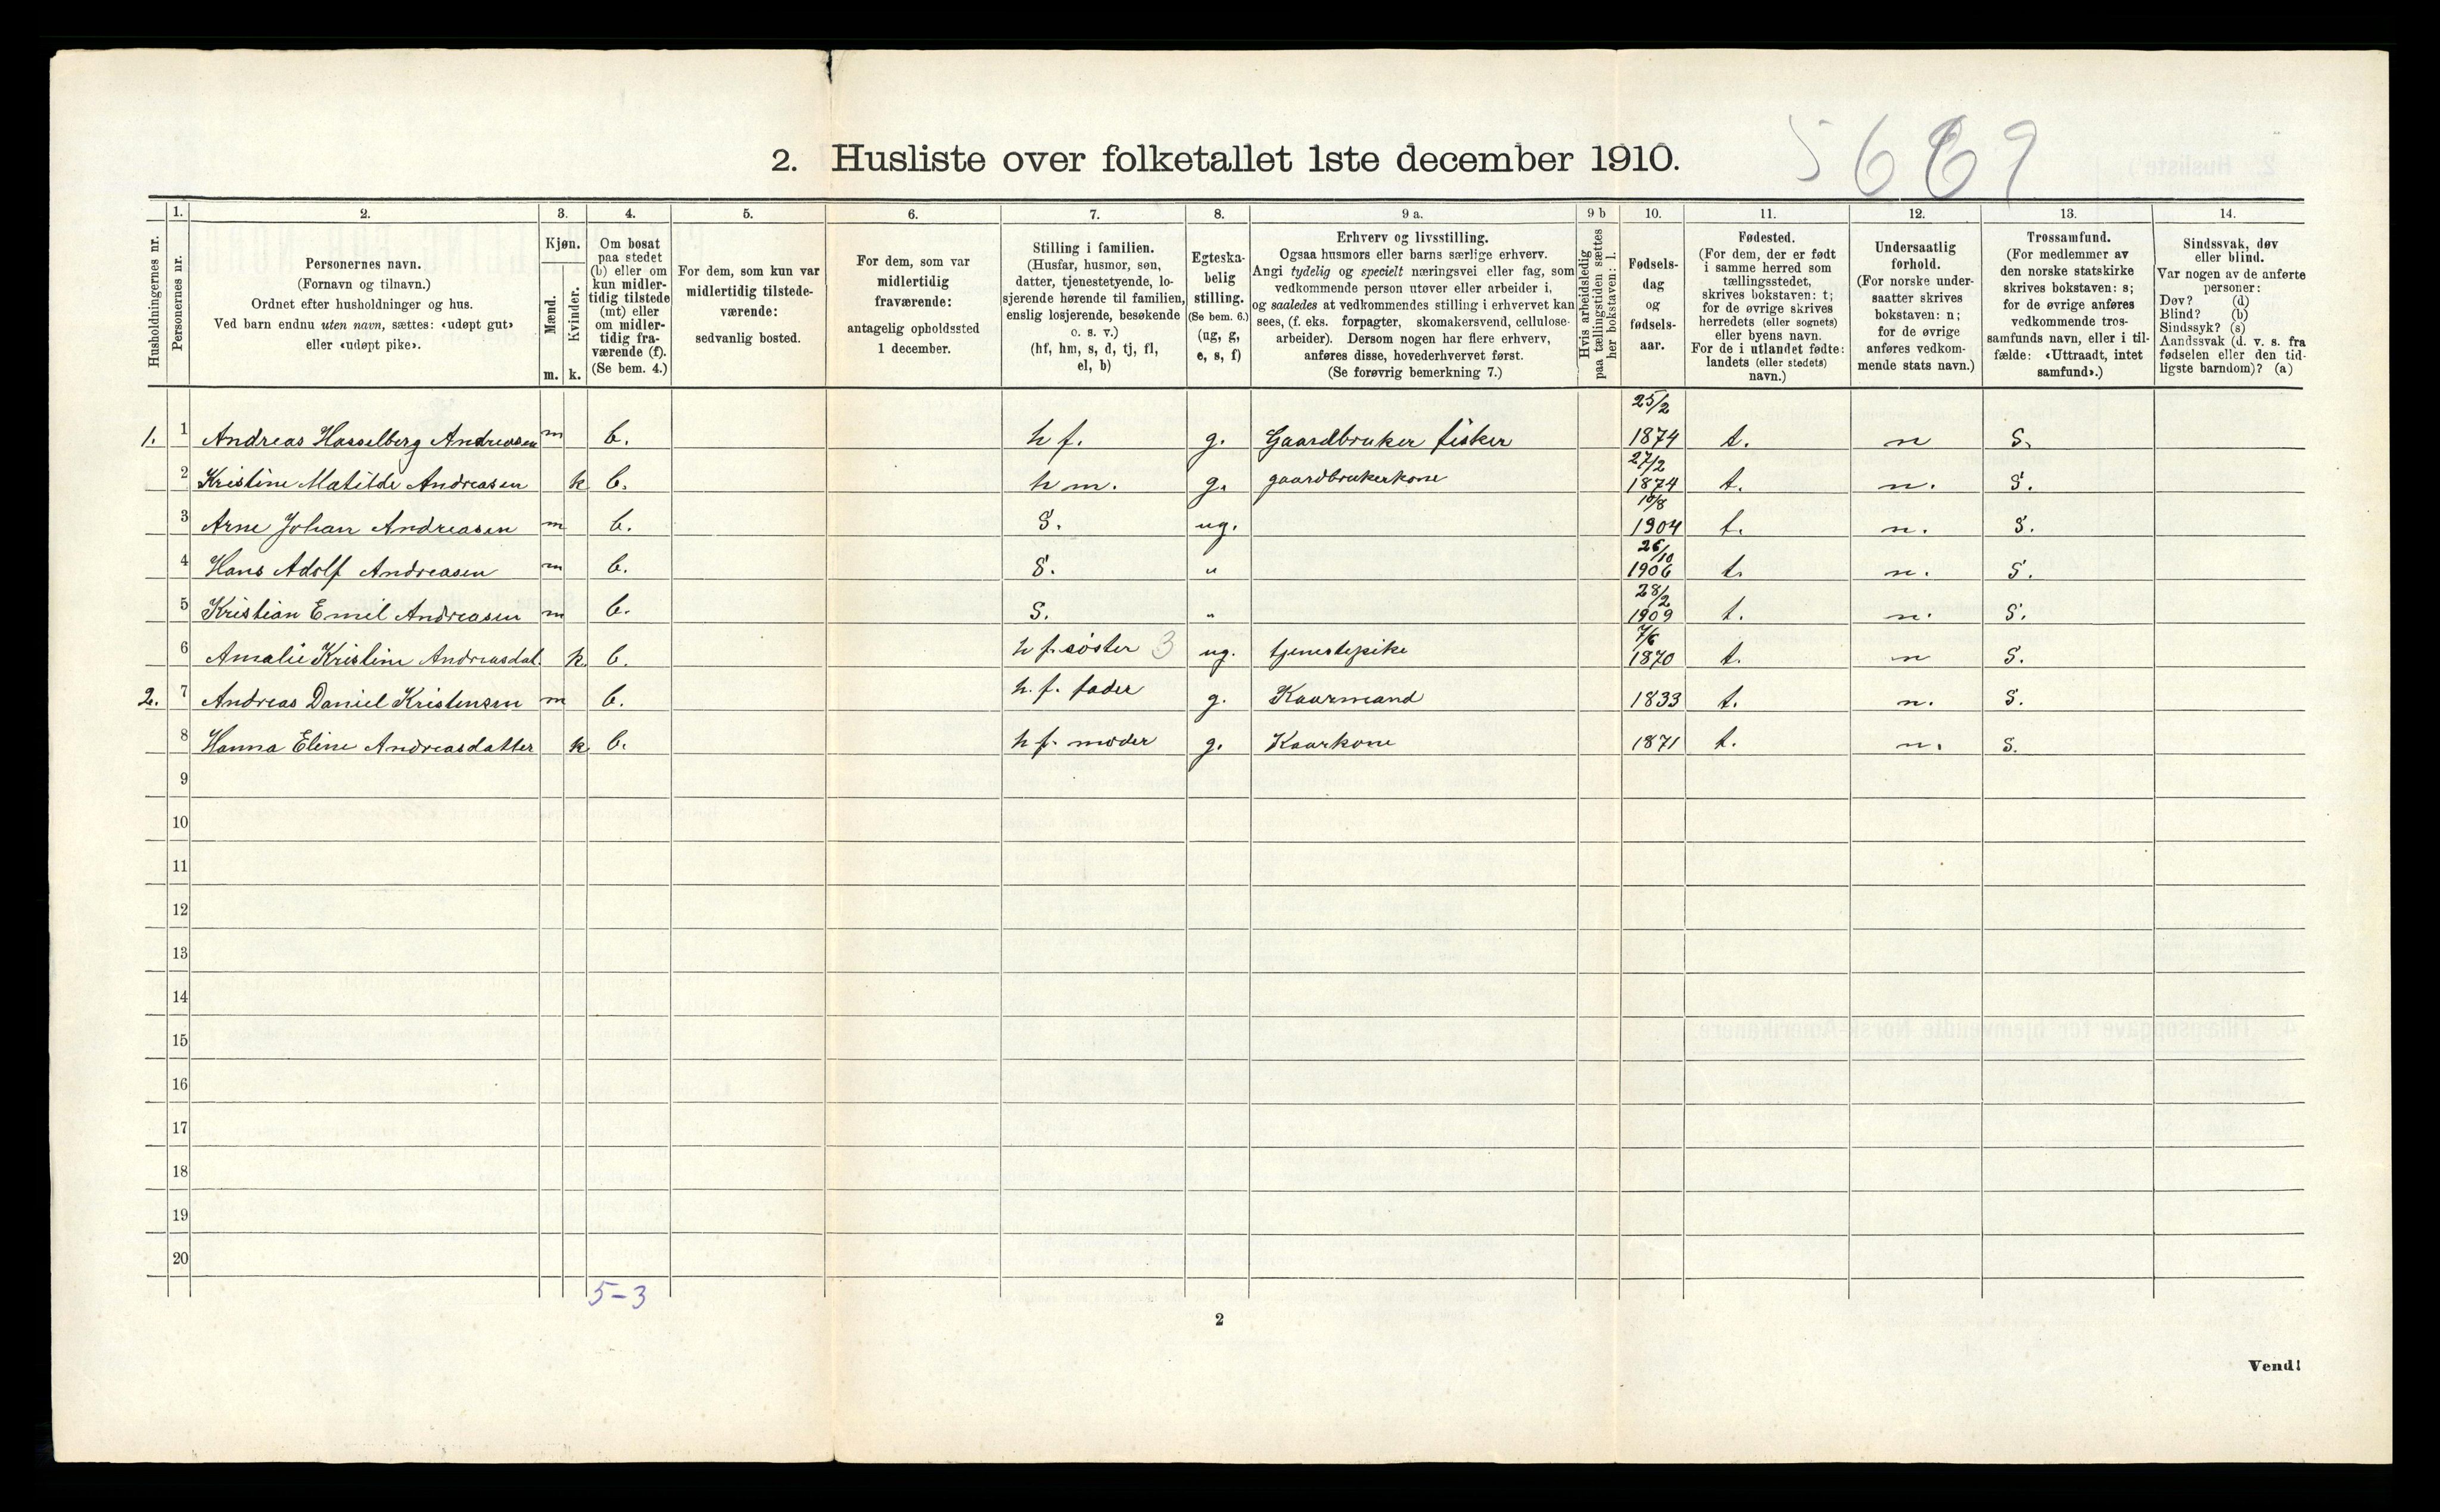 5669
2. Husliste over folketallet 1ste december 1910.
Husholdningernes nr.
1. Personernes nr.
2. Personernes navn. (Fornavn og tilnavn.) Ordnet efter husholdninger og hus. Ved barn endnu uten navn, sættes: «udøpt gut» eller «udøpt pike».
3. Kjøn. Mænd. m. Kvinder. k.
4. Om bosat paa stedet (b) eller om kun midler-tidig tilstede (mt) eller om midler-tidig fra-værende (f). (Se bem. 4.)
5. For dem, som kun var midlertidig tilstede-værende: sedvanlig bosted.
6. For dem, som var midlertidig fraværende: antagelig opholdssted 1 december.
7. Stilling i familien. (Husfar, husmor, søn, datter, tjenestetyende, lo-sjerende hørende til familien, enslig losjerende, besøkende o. s. v.) (hf, hm, s, d, tj, fl, el, b)
8. Egteska-belig stilling. (Se bem. 6.) (ug, g, e, s, f)
9 a. Erhverv og livsstilling. Ogsaa husmors eller barns særlige erhverv. Angi tydelig og specielt næringsvei eller fag, som vedkommende person utøver eller arbeider i, og saaledes at vedkommendes stilling i erhvervet kan sees, (f. eks. forpagter, skomakersvend, cellulose-arbeider). Dersom nogen har flere erhverv, anføres disse, hovederhvervet først. (Se forøvrig bemerkning 7.)
9 b Hvis arbeidsledig paa tællingstiden sættes her bokstaven: l.
10. Fødsels-dag og fødsels-aar.
11. Fødested. (For dem, der er født i samme herred som tællingsstedet, skrives bokstaven: t; for de øvrige skrives herredets (eller sognets) eller byens navn. For de i utlandet fødte: landets (eller stedets) navn.)
12. Undersaatlig forhold. (For norske under-saatter skrives bokstaven: n; for de øvrige anføres vedkom-mende stats navn.)
13. Trossamfund. (For medlemmer av den norske statskirke skrives bokstaven: s; for de øvrige anføres vedkommende tros-samfunds navn, eller i til-fælde: «Uttraadt, intet samfund».)
14. Sindssvak, døv eller blind. Var nogen av de anførte personer: Døv? (d) Blind? (b) Sindssyk? (s) Aandssvak (d. v. s. fra fødselen eller den tid-ligste barndom)? (a)
1. 1 Andreas Hasselberg Andreasen m b. hf. g. Gaardbruker fisker 25/2 1874 t. n s.
2 Kristine Matilde Andreasen k b. hm. g. gaardbrukerkone 27/2 1874 t. n. s.
3 Arne Johan Andreasen m b. s. ug. 10/8 1904 t. n. s.
4 Hans Adolf Andreasen m b. s. " 26/10 1906 t. n. s.
5 Kristian Emil Andreasen m b. s. " 28/2 1909 t. n. s.
6 Amalie Kristine Andreasdat. k. b. hf. søster 3 ug. tjenestepike 7/6 1870 t. n s.
2. 7 Andreas Daniel Kristensen m b. h. f. fader g. Kaarmand 1833 t. n. s.
8 Hanna Eline Andreasdatter k b. hf. moder g. Kaarkone 1871 t. n. s.
9
10
11
12
13
14
15
16
17
18
19
20
5-3
2
Vend!